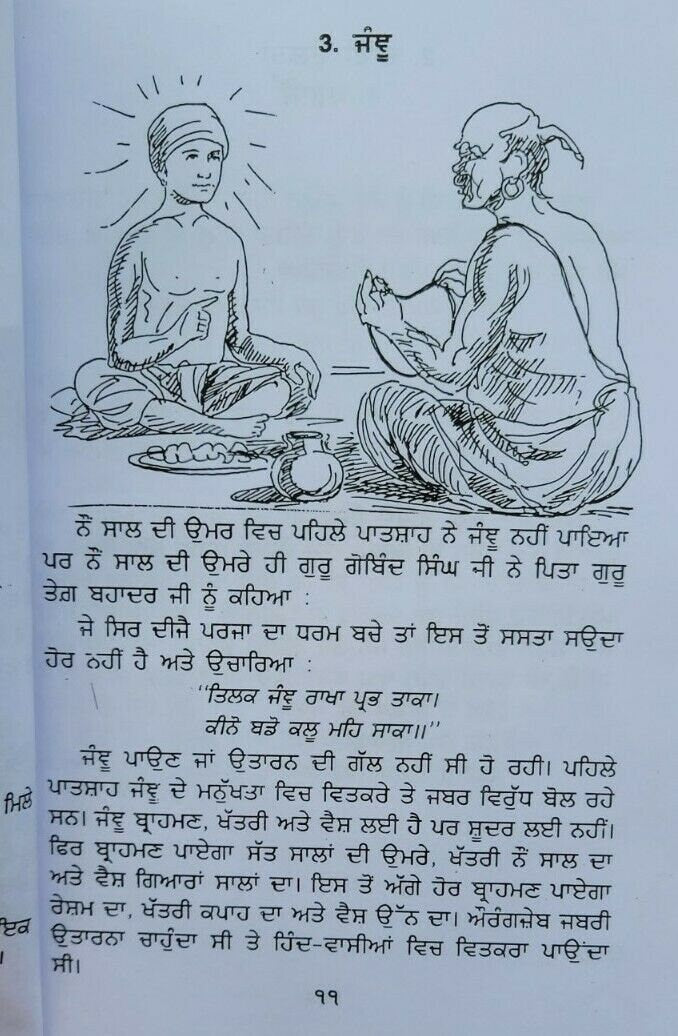 3. ਜੰਞੂ
ਨੌਂ ਸਾਲ ਦੀ ਉਮਰ ਵਿਚ ਪਹਿਲੇ ਪਾਤਸ਼ਾਹ ਨੇ ਜੰਞੂ ਨਹੀਂ ਪਾਇਆ
ਪਰ ਨੌਂ ਸਾਲ ਦੀ ਉਮਰੇ ਹੀ ਗੁਰੂ ਗੋਬਿੰਦ ਸਿੰਘ ਜੀ ਨੇ ਪਿਤਾ ਗੁਰੂ
ਤੇਗ਼ ਬਹਾਦਰ ਜੀ ਨੂੰ ਕਹਿਆ :
ਜੇ ਸਿਰ ਦੀਜੈ ਪਰਜਾ ਦਾ ਧਰਮ ਬਚੇ ਤਾਂ ਇਸ ਤੋਂ ਸਸਤਾ ਸਉਦਾ
ਹੋਰ ਨਹੀਂ ਹੈ ਅਤੇ ਉਚਾਰਿਆ :
"ਤਿਲਕ ਜੰਞੂ ਰਾਖਾ ਪ੍ਰਭ ਤਾਕਾ।
ਕੀਨੋ ਬਡੋ ਕਲੂ ਮਹਿ ਸਾਕਾ॥"
ਜੰਞੂ ਪਾਉਣ ਜਾਂ ਉਤਾਰਨ ਦੀ ਗੱਲ ਨਹੀਂ ਸੀ ਹੋ ਰਹੀ। ਪਹਿਲੇ
ਪਾਤਸ਼ਾਹ ਜੰਞੂ ਦੇ ਮਨੁੱਖਤਾ ਵਿਚ ਵਿਤਕਰੇ ਤੇ ਜਬਰ ਵਿਰੁੱਧ ਬੋਲ ਰਹੇ
ਸਨ। ਜੰਞੂ ਬ੍ਰਾਹਮਣ, ਖੱਤਰੀ ਅਤੇ ਵੈਸ਼ ਲਈ ਹੈ ਪਰ ਸ਼ੂਦਰ ਲਈ ਨਹੀਂ।
ਫਿਰ ਬ੍ਰਾਹਮਣ ਪਾਏਗਾ ਸੱਤ ਸਾਲਾਂ ਦੀ ਉਮਰੇ, ਖੱਤਰੀ ਨੌਂ ਸਾਲ ਦਾ
ਅਤੇ ਵੈਸ਼ ਗਿਆਰਾਂ ਸਾਲਾਂ ਦਾ। ਇਸ ਤੋਂ ਅੱਗੇ ਹੋਰ ਬ੍ਰਾਹਮਣ ਪਾਏਗਾ
ਰੇਸ਼ਮ ਦਾ, ਖੱਤਰੀ ਕਪਾਹ ਦਾ ਅਤੇ ਵੈਸ਼ ਉੱਨ ਦਾ। ਔਰੰਗਜ਼ੇਬ ਜਬਰੀ
ਉਤਾਰਨਾ ਚਾਹੁੰਦਾ ਸੀ ਤੇ ਹਿੰਦ-ਵਾਸੀਆਂ ਵਿਚ ਵਿਤਕਰਾ ਪਾਉਂਦਾ
ਸੀ।
੧੧
ਮਿਲੇ